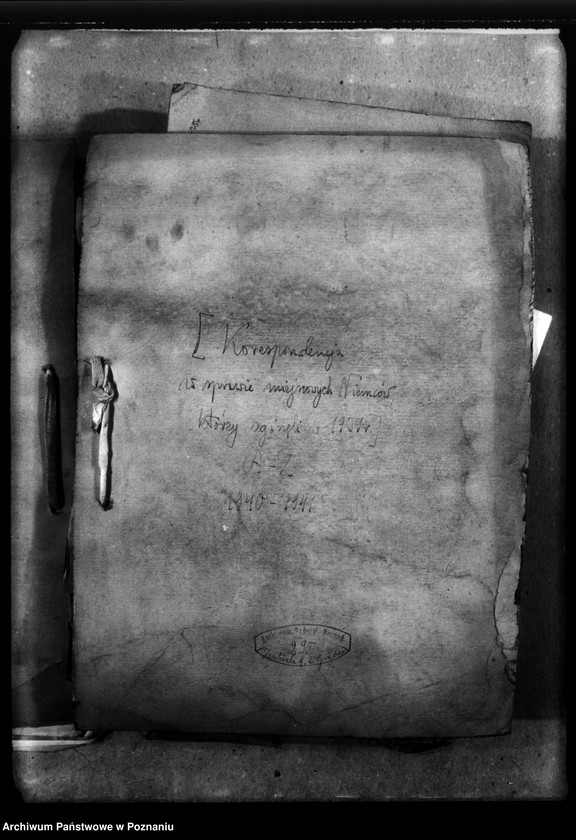 [Korespondencja
w sprawie miejscowych Niemców
którzy zginęli w 1939r.]
A-Z
1940-1941
895
Archiwum Państwowe w Poznaniu